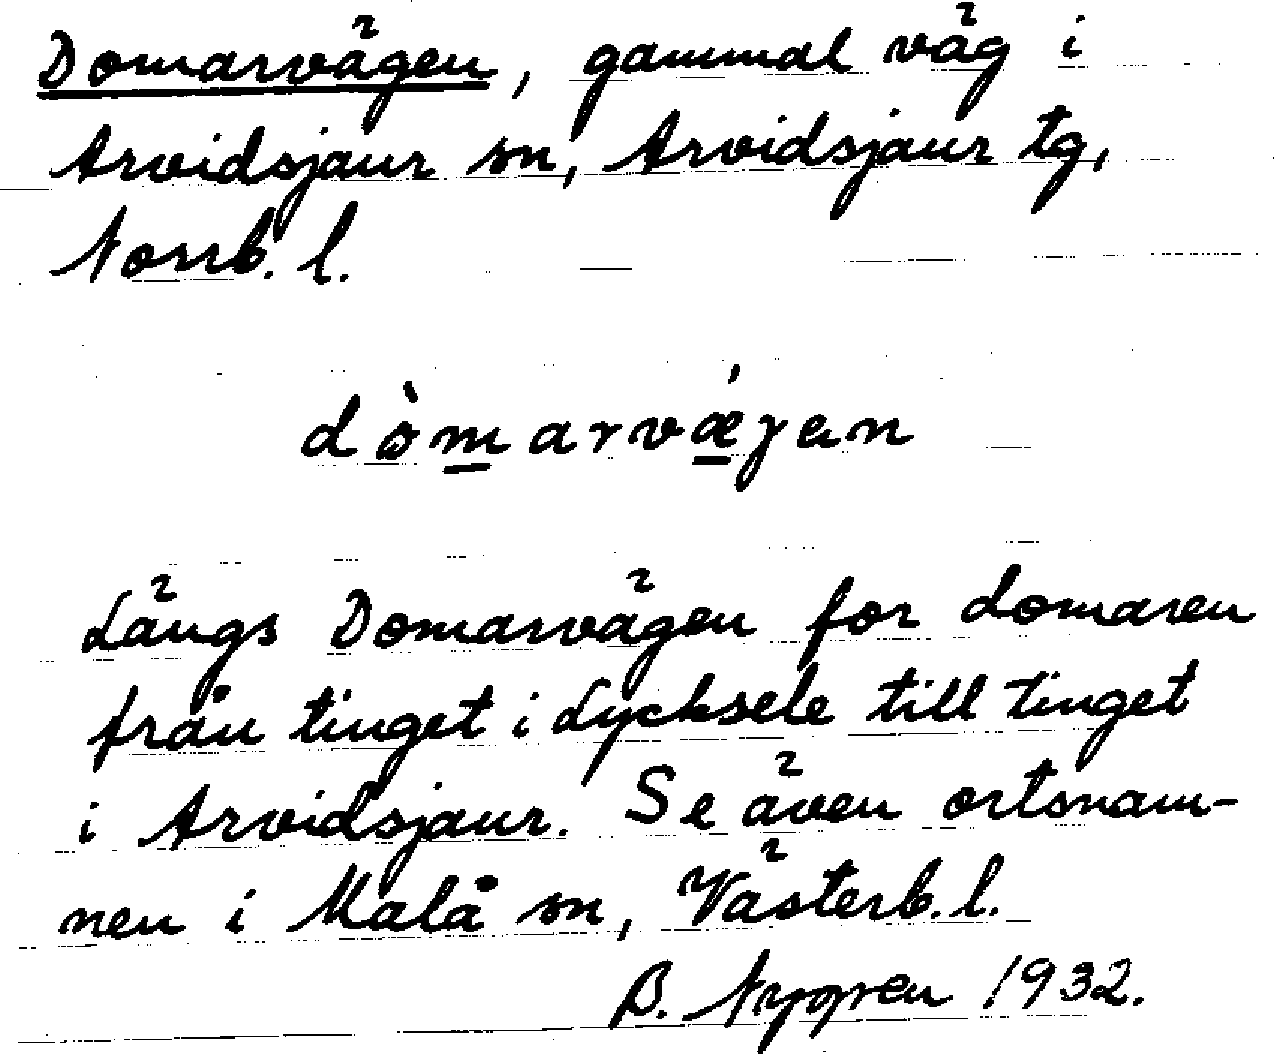 Domarvägen, gammal väg i
Arvidsjaur sn, Arvidsjaur tg,
Norrb. l.
dòmarvǽgen
Längs Domarvägen for domaren
från tinget i Lycksele till tinget
i Arvidsjaur. Se även ortsnam-
nen i Malå sn, Västerb. l.
B. Nygren 1932.